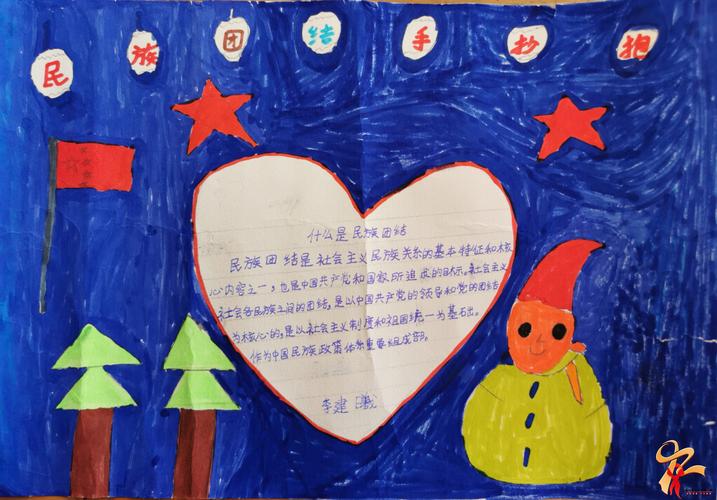 民族团结手抄抱
什么是民族团结
民族团结是社会主义民族关系的基本特征和核
心内容之一,也是中国共产党和国家所追求的目标。社会主义
社会各民族之间的团结,是以中国共产党的领导和党的团结
为核心的,是以社会主义制度和祖国统一为基础。
作为中国民族政策体系重要组成部。
李建曦